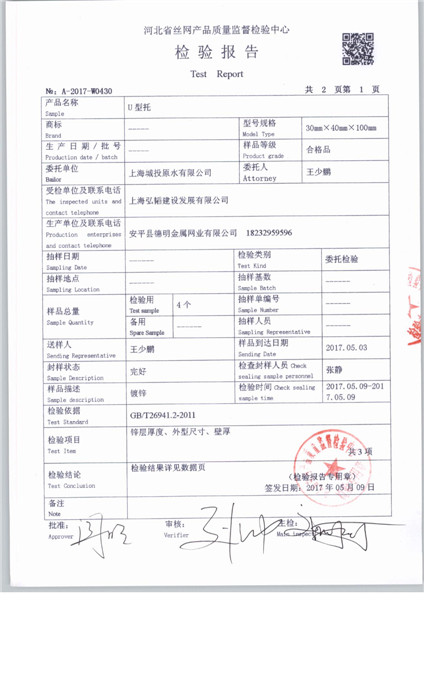 河北省丝网产品质量监督检验中心
检验报告
Test Report
№: A-2017-W0430 共 2 页第 1 页
产品名称 U型托
Sample
商标 ----- 型号规格 30mm×40mm×100mm
Brand Model Type
生产日期/批号 ----- 样品等级 合格品
Production date / batch Product grade
委托单位 上海城投原水有限公司 委托人 王少鹏
Bailor Attorney
受检单位及联系电话 上海弘韬建设发展有限公司
The inspected units and
contact telephone
生产单位及联系电话 安平县德明金属网业有限公司 18232959596
Production enterprises
and contact telephone
抽样日期 ------ 检验类别 委托检验
Sampling Date Test Kind
抽样地点 ------ 抽样基数 ------
Sampling Location Sample Batch
样品总量 检验用 4个 抽样单编号 ------
Sample Quantity Test sample Sample Number
备用 ------ 抽样人员 ------
Spare Sample Sampling Representative
送样人 王少鹏 样品到达日期 2017.05.03
Sending Representative Sending Date
封样状态 完好 检查封样人员 Check 张静
Sample Description sealing sample personnel
样品描述 镀锌 检验时间 Check sealing 2017.05.09-201
Sample description sample time 7.05.09
检验依据 GB/T26941.2-2011
Test Standard
检验项目 锌层厚度、外型尺寸、壁厚
Test Item 共3项
检验结论 检验结果详见数据页
Test Conclusion (检验报告专用章)
签发日期: 2017年05月09日
备注
Note
批准: 审核: 主检:
Approver Verifier Main Inspector